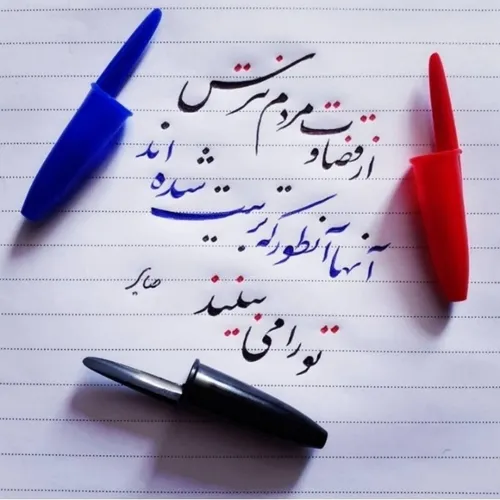 از قضاوت مردم نترس
آنها آنطور که تربیت شده اند
تو را می بینند
صابر